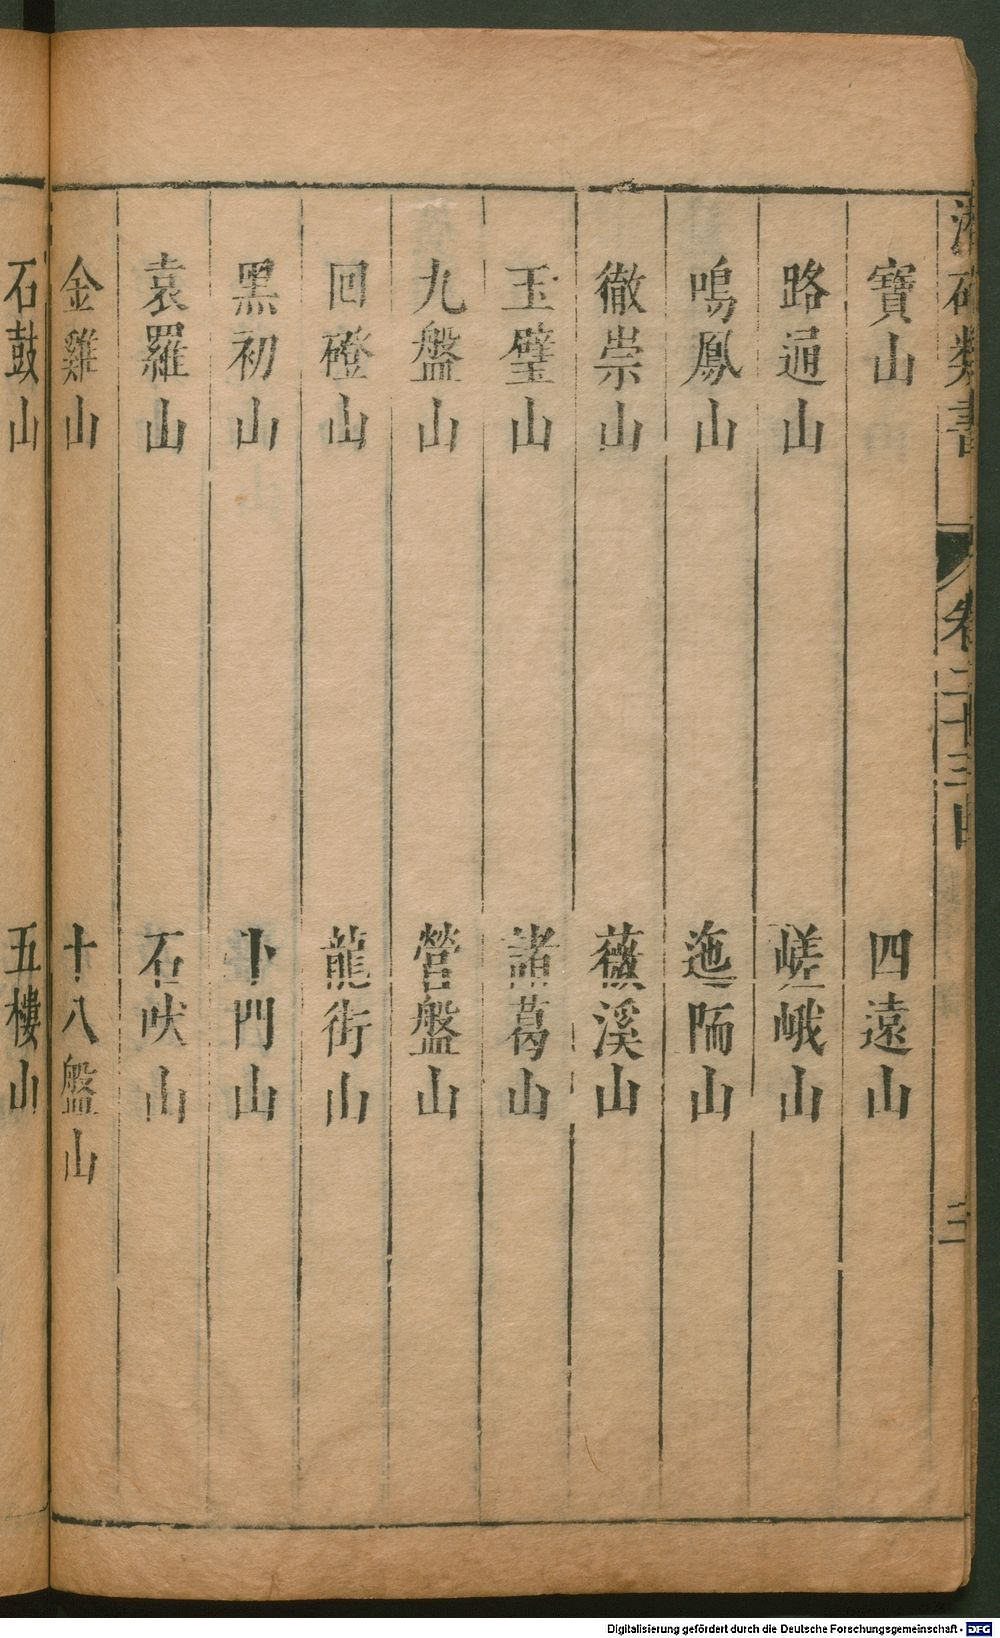 類書
卷二十三
三
寶山 四遠山
路通山 嵯峨山
鳴鳳山 迤陑山
徹崇山 薇溪山
玉璧山 諸葛山
九盤山 營盤山
回磴山 龍街山
黑初山 卜門山
袁羅山 石吠山
金雞山 十八盤山
石鼓山 五樓山
Digitalisierung gefördert durch die Deutsche Forschungsgemeinschaft - DFG